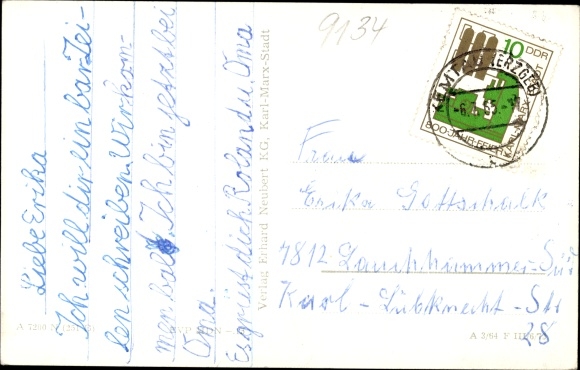 Liebe Erika
Ich will dir ein bar Zei-
len schreiben. Wir kom-
men bald. Ich bin jetzt bei
Oma.
Es grüst dich Roland u. Oma
Verlag Erhard Neubert KG, Karl-Marx-Stadt
9134
10 DDR
(ERZGEB)
800 JAHR-FEIER
Frau
Erika Gottschalk
7812 Lauchhammer-Süd
Karl-Liebknecht-Str
28